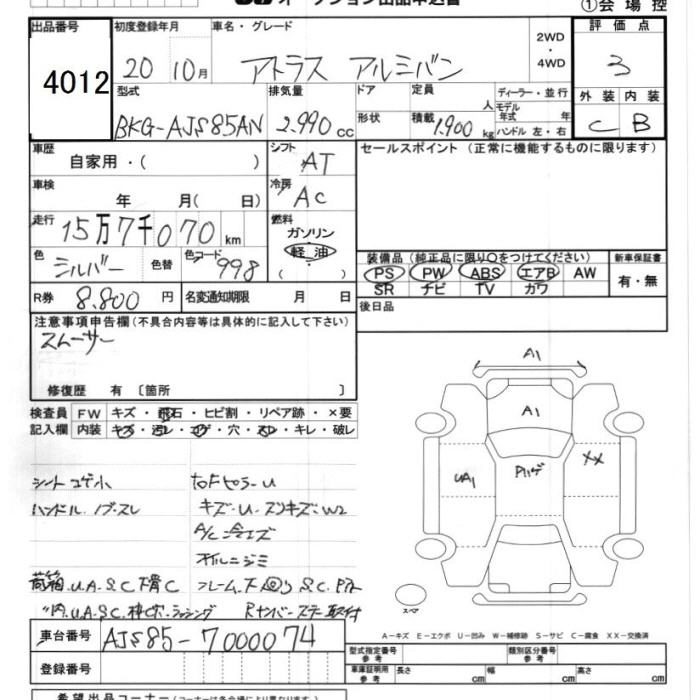 ①会場控
出品番号 初度登録年月 車名・グレード 評価点
4012 20 10月 アトラス アルミバン 2WD・4WD 3
型式 排気量 ドア 定員 人 ディーラー・並行 外装 内装
BKG-AJS85AN 2.990 cc 形状 積載 1,900 kg モデル年式 年 ハンドル 左・右 C B
車歴 自家用・( ) シフト AT セールスポイント (正常に機能するものに限ります)
車検 年 月( 日) 冷房 AC
走行 15万7千070 km 燃料 ガソリン 軽油 ( )
色 シルバー 色替 色コード 998
装備品 (純正品に限り○をつけてください) 新車保証書
PS PW ABS エアB AW 有・無
SR ナビ TV カワ
R券 8.800 円 名変通知期限 月 日
後日品
注意事項申告欄 (不具合内容等は具体的に記入して下さい)
スムーサー
修復歴 有 〔箇所 〕
検査員 FW キズ・飛石・ヒビ割・リペア跡・×要
記入欄 内装 キズ・汚レ・コゲ・穴・スレ・キレ・破レ
A1
A1
UA1
XX
シートコゲ小
ハンドル、ノブ・スレ
キズ・U
スペア
A-キズ E-エクボ U-凹み W-補修跡 S-サビ C-腐食 XX-交換済
車台番号 AJS85-7000074
型式指定番号 参考 類別区分番号 参考
登録番号 車庫証明用 参考 長さ cm 幅 cm 高さ cm
希望出品コーナー